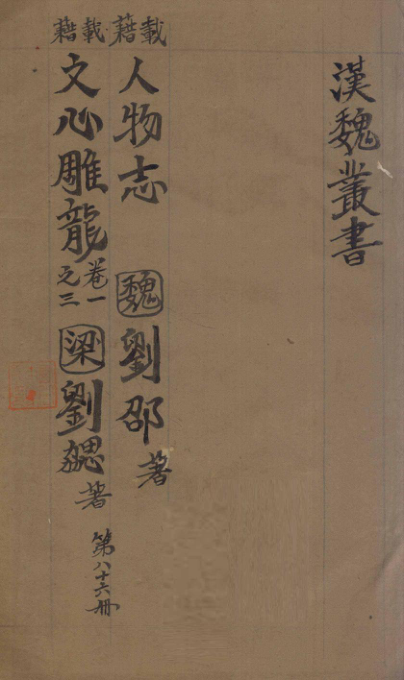 漢魏叢書
載籍
人物志 魏 劉邵 著
載籍
文心雕龍 卷一之三 梁 劉勰 著
第八十六冊